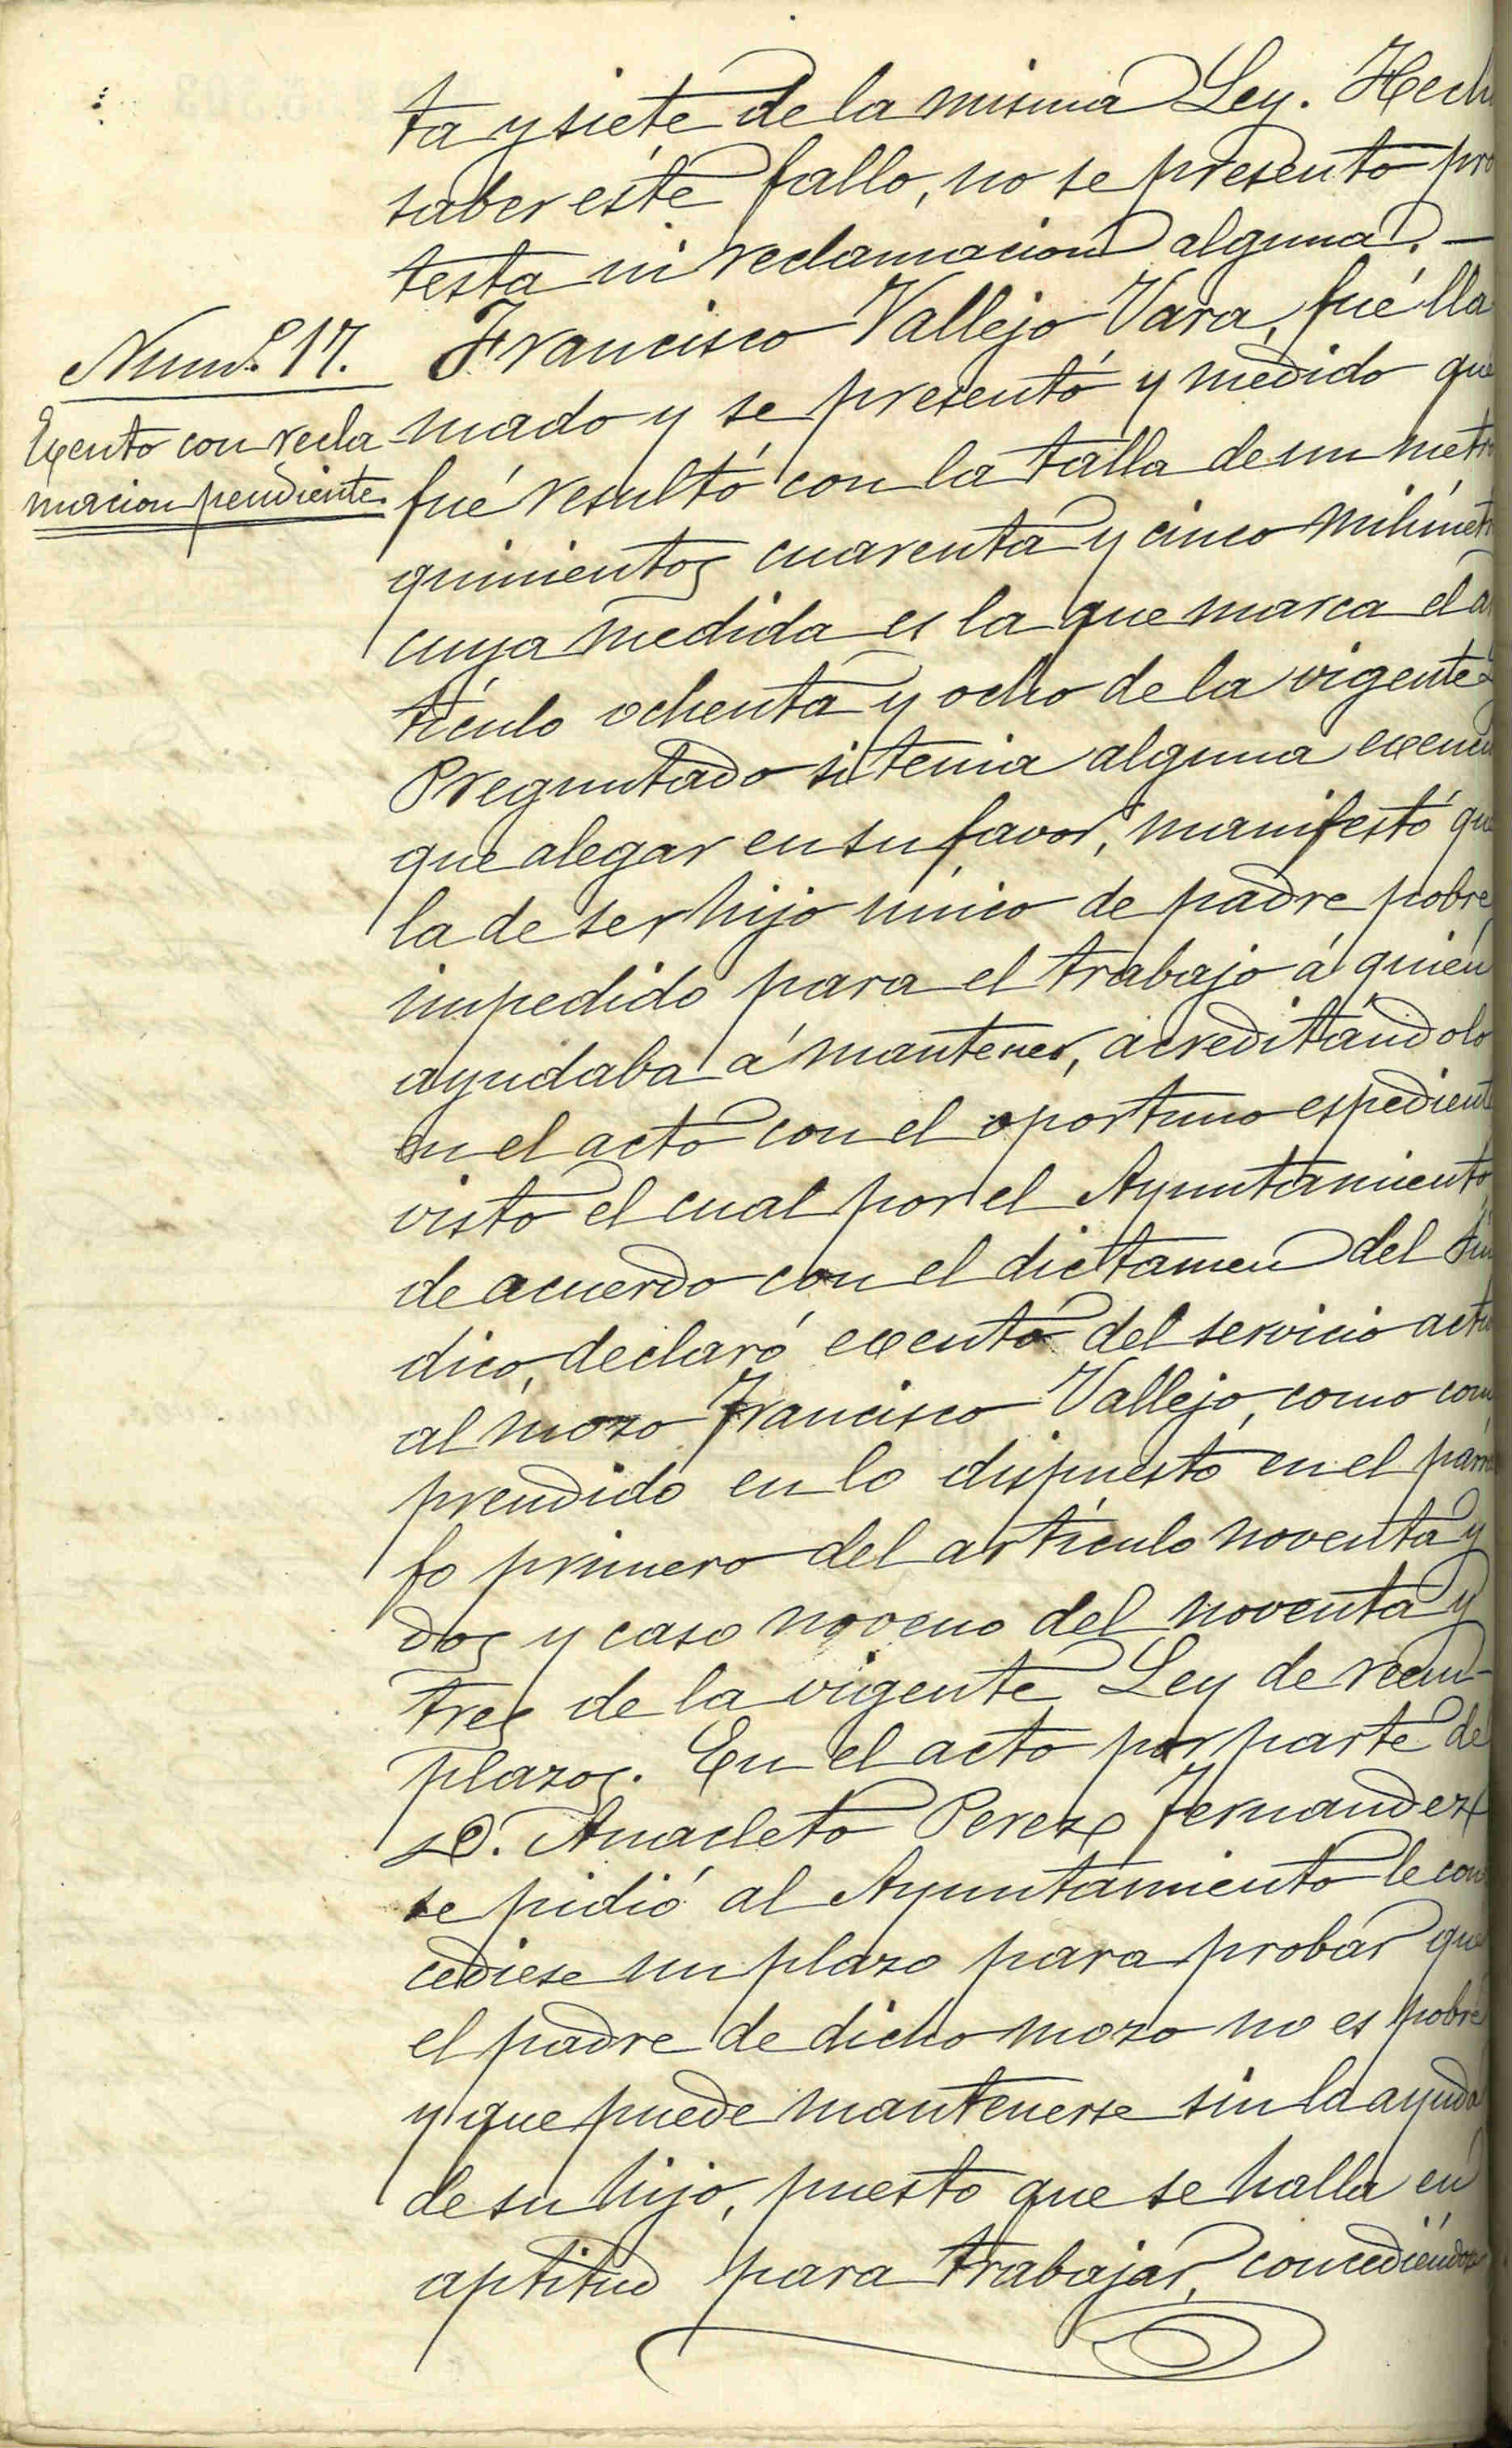 ta y siete de la misma Ley. Hech
saber este fallo, no se presentó pro
testa ni reclamacion alguna. —
Num.º 17.
Exento con recla
macion pendiente.
Francisco Vallejo Vara, fué lla
mado y se presentó y medido que
fué resultó con la talla de un metr
quinientos cuarenta y cinco milímetr
cuya medida es la que marca el a
tículo ochenta y ocho de la vigente
Preguntado si tenia alguna exenci
que alegar en su favor, manifestó qu
la de ser hijo único de padre pobre
impedido para el trabajo á quién
ayudaba á mantener, acreditándolo
en el acto con el oportuno espedient
visto el cual por el Ayuntamiento
de acuerdo con el dictamen del Sín
dico, declaró exento del servicio acti
al mozo Francisco Vallejo, como com
prendido en lo dispuesto en el párra
fo primero del artículo noventa y
dos y caso noveno del noventa y
tres de la vigente Ley de reem-
plazos. En el acto por parte de
D. Anacleto Perez Fernandez
se pidió al Ayuntamiento le con
cediese un plazo para probar que
el padre de dicho mozo no es pobre
y que puede mantenerse sin la ayuda
de su hijo, puesto que se halla en
aptitud para trabajar, concediéndose